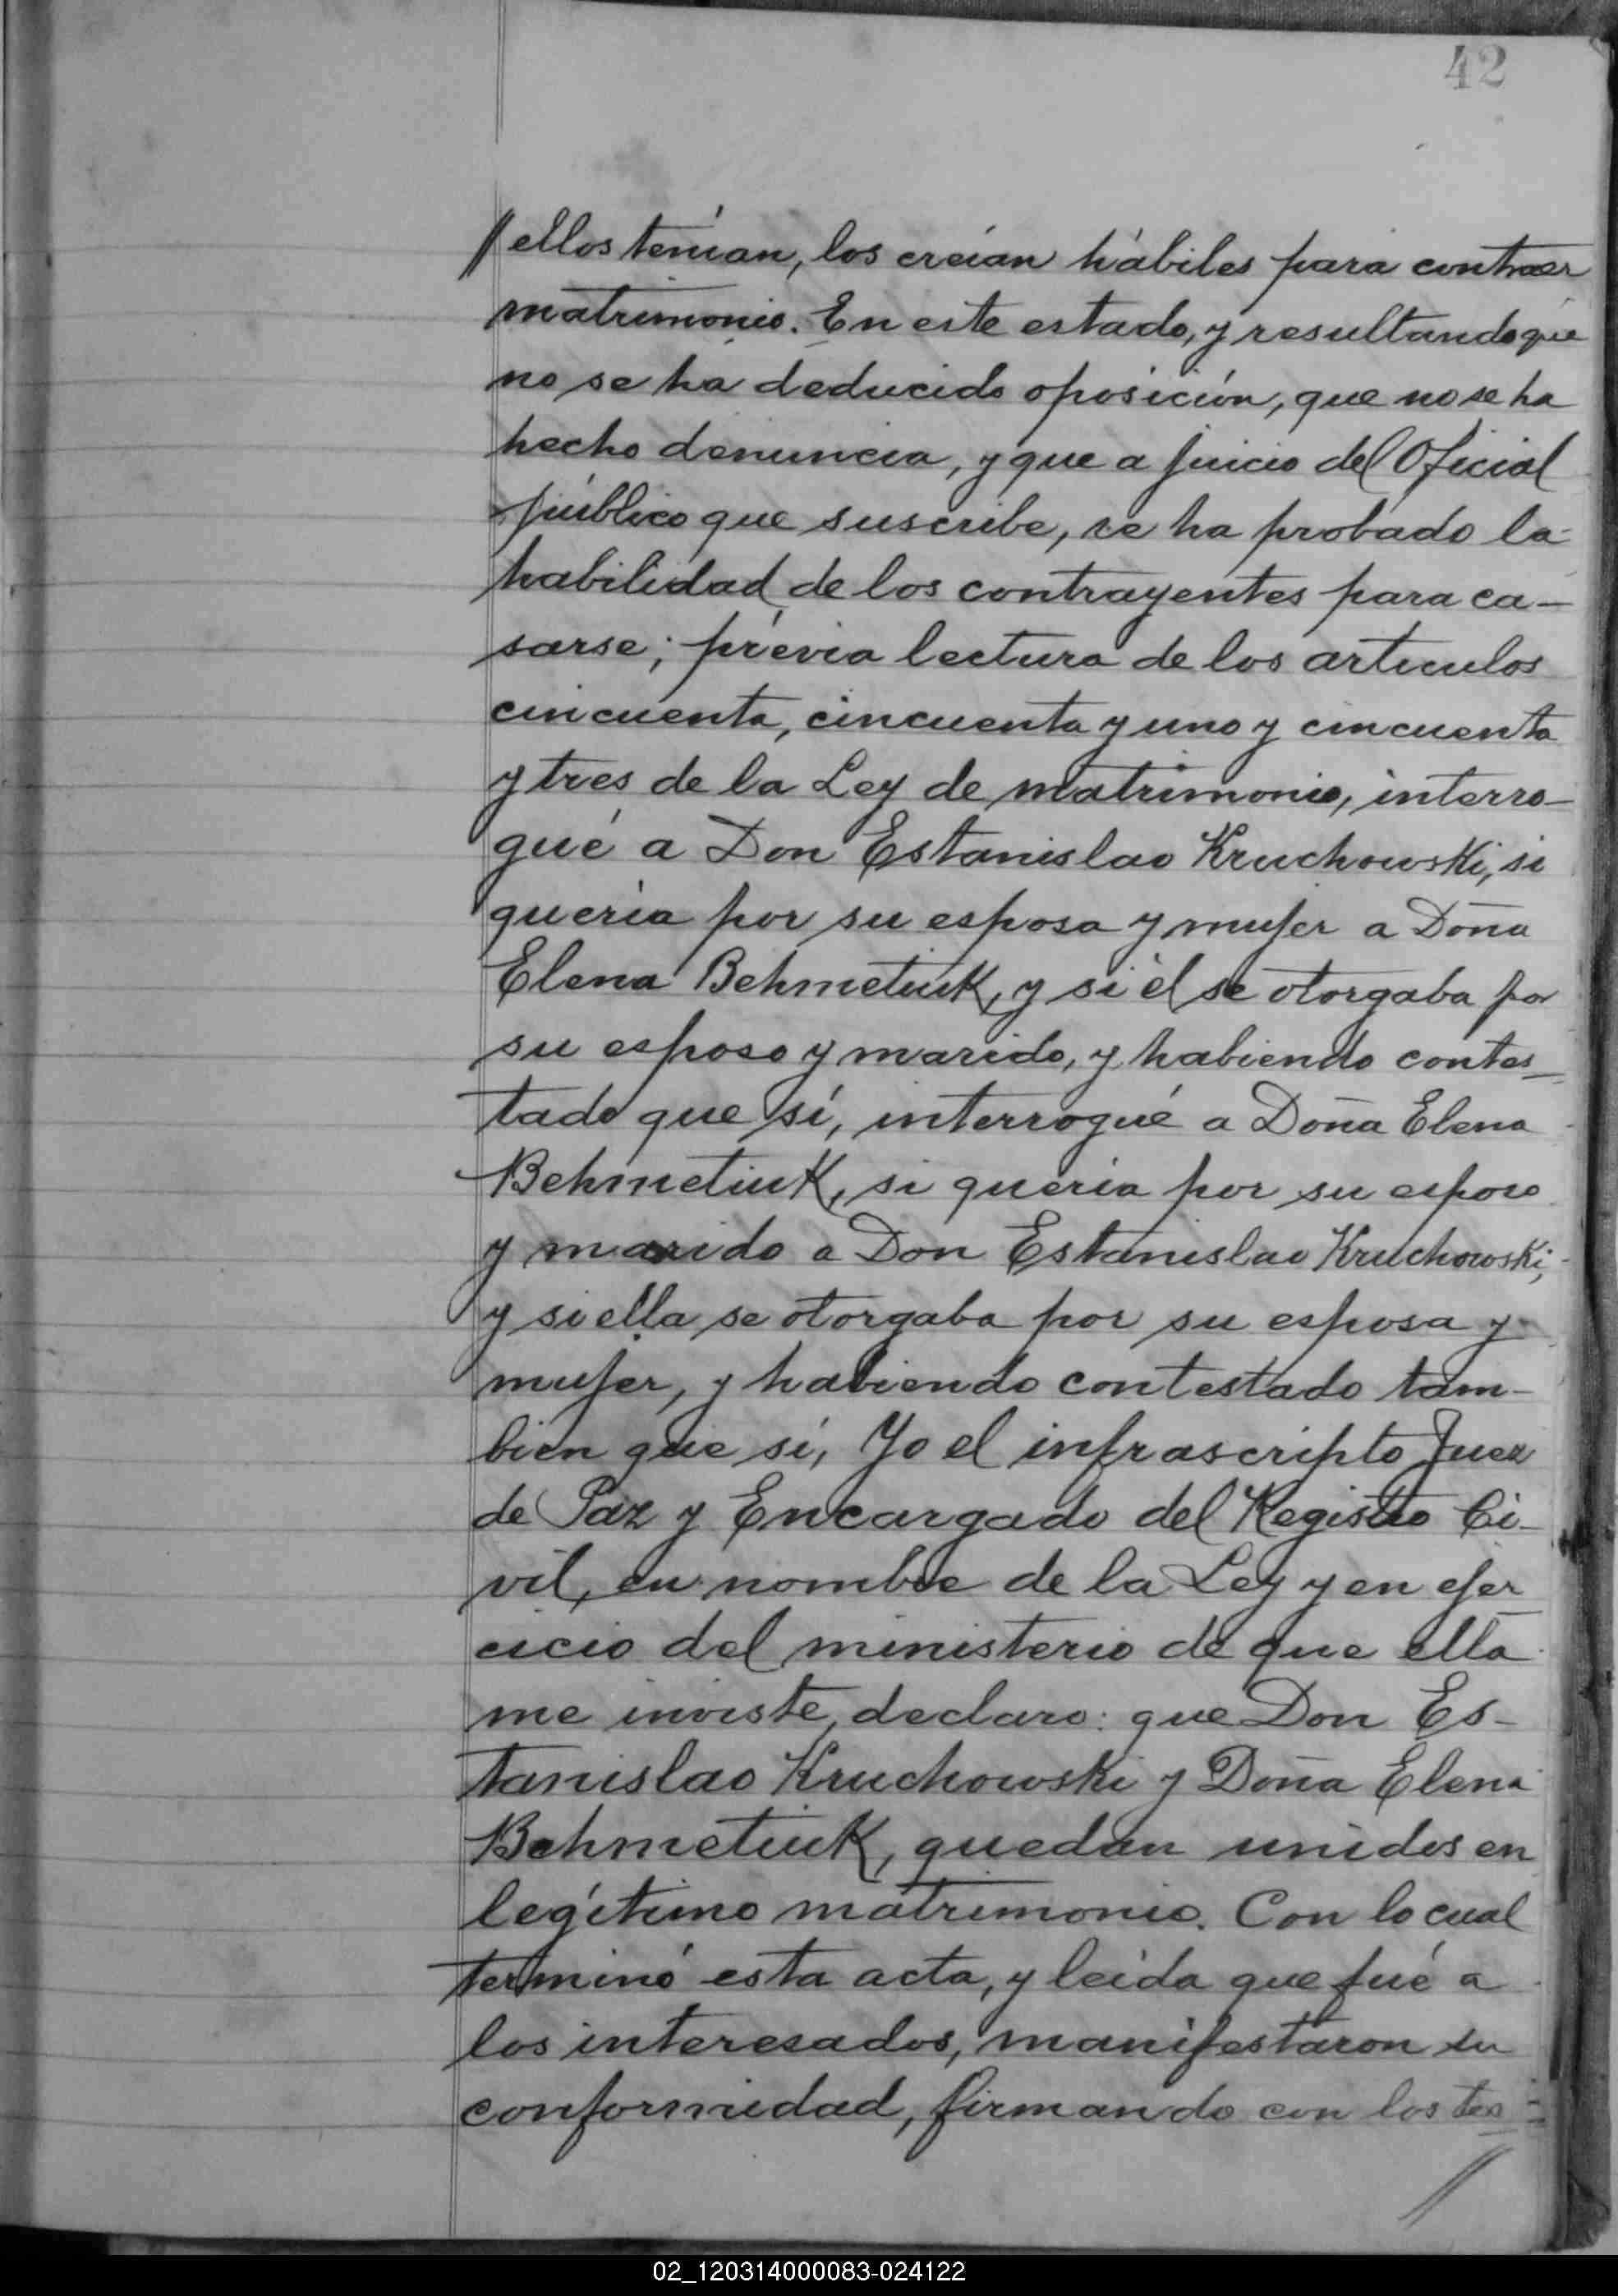 42
// ellos tenían, los creían hábiles para contraer
matrimonio. En este estado, y resultando que
no se ha deducido oposición, que no se ha
hecho denuncia, y que a juicio del Oficial
público que suscribe, se ha probado la
habilidad de los contrayentes para ca-
sarse; prévia lectura de los artículos
cincuenta, cincuenta y uno y cincuenta
y tres de la Ley de matrimonio, interro-
gué a Don Estanislao Kruchowski, si
quería por su esposa y mujer a Doña
Elena Behmetiuk, y si él se otorgaba por
su esposo y marido, y habiendo contes-
tado que sí, interrogué a Doña Elena
Behmetiuk, si quería por su esposo
y marido a Don Estanislao Kruchowski,
y si ella se otorgaba por su esposa y
mujer, y habiendo contestado tam-
bien que sí, Yo el infrascripto Juez
de Paz y Encargado del Registro Ci-
vil, en nombre de la Ley y en ejer
cicio del ministerio de que ella
me inviste, declaro: que Don Es-
tanislao Kruchowski y Doña Elena
Behmetiuk, quedan unidos en
legítimo matrimonio. Con lo cual
terminó esta acta, y leída que fué a
los interesados, manifestaron su
conformidad, firmando con los tes=
//
02_120314000083-024122